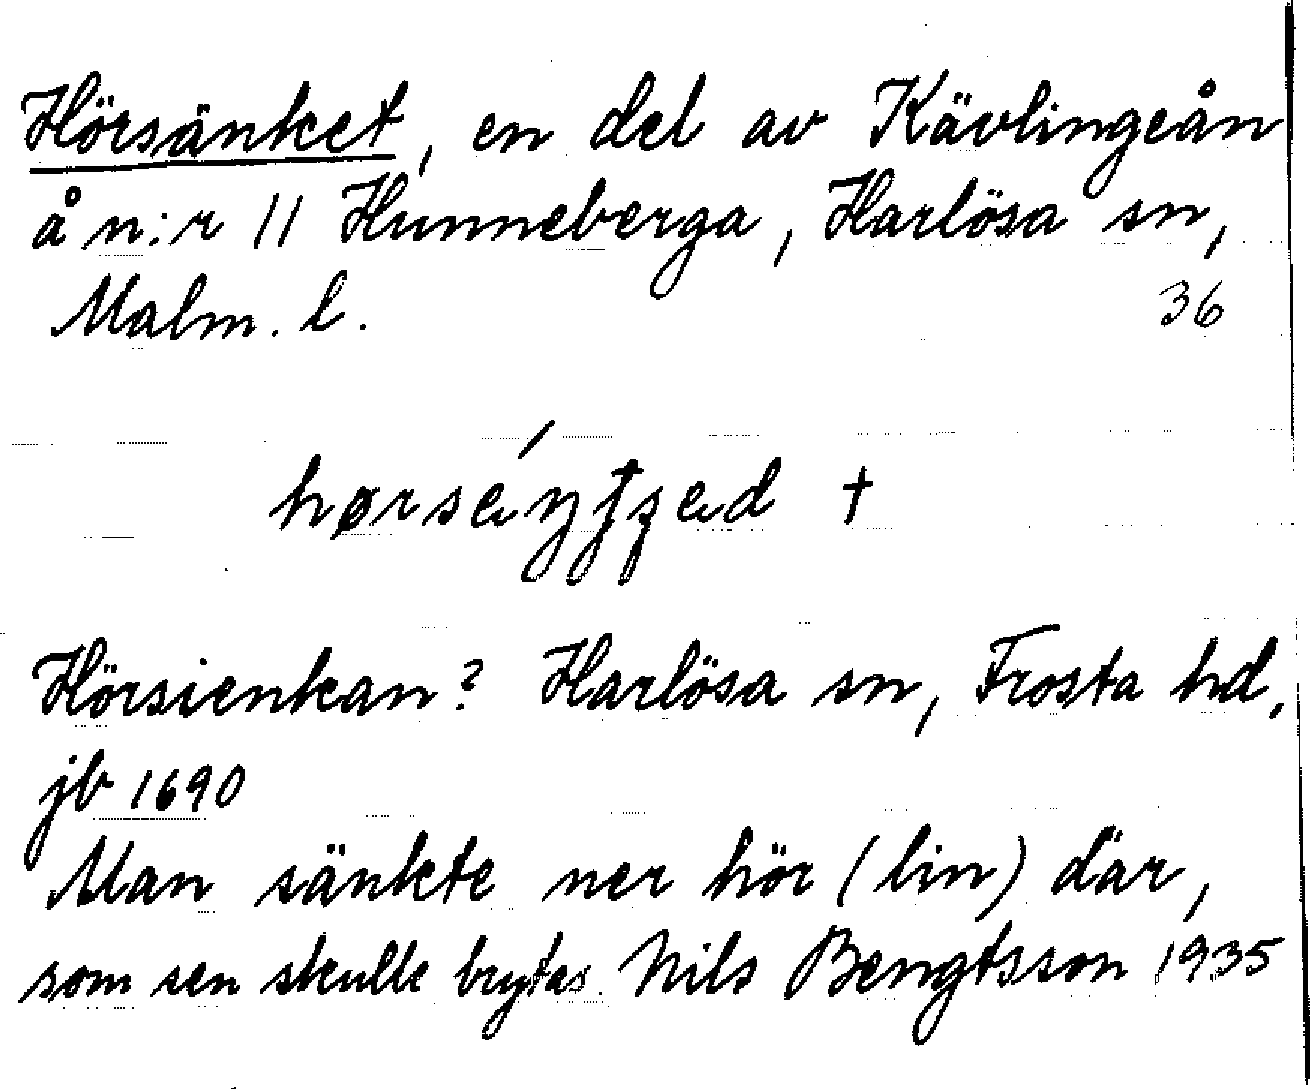 Hörsänket, en del av Kävlingeån
å n:r 11 Hunneberga, Harlösa sn,
Malm. l. 36
†
Hörsienkan? Harlösa sn, Frosta hd,
jb 1690
Man sänkte ner hör (lin) där,
som sen skulle brytas. Nils Bengtsson 1935